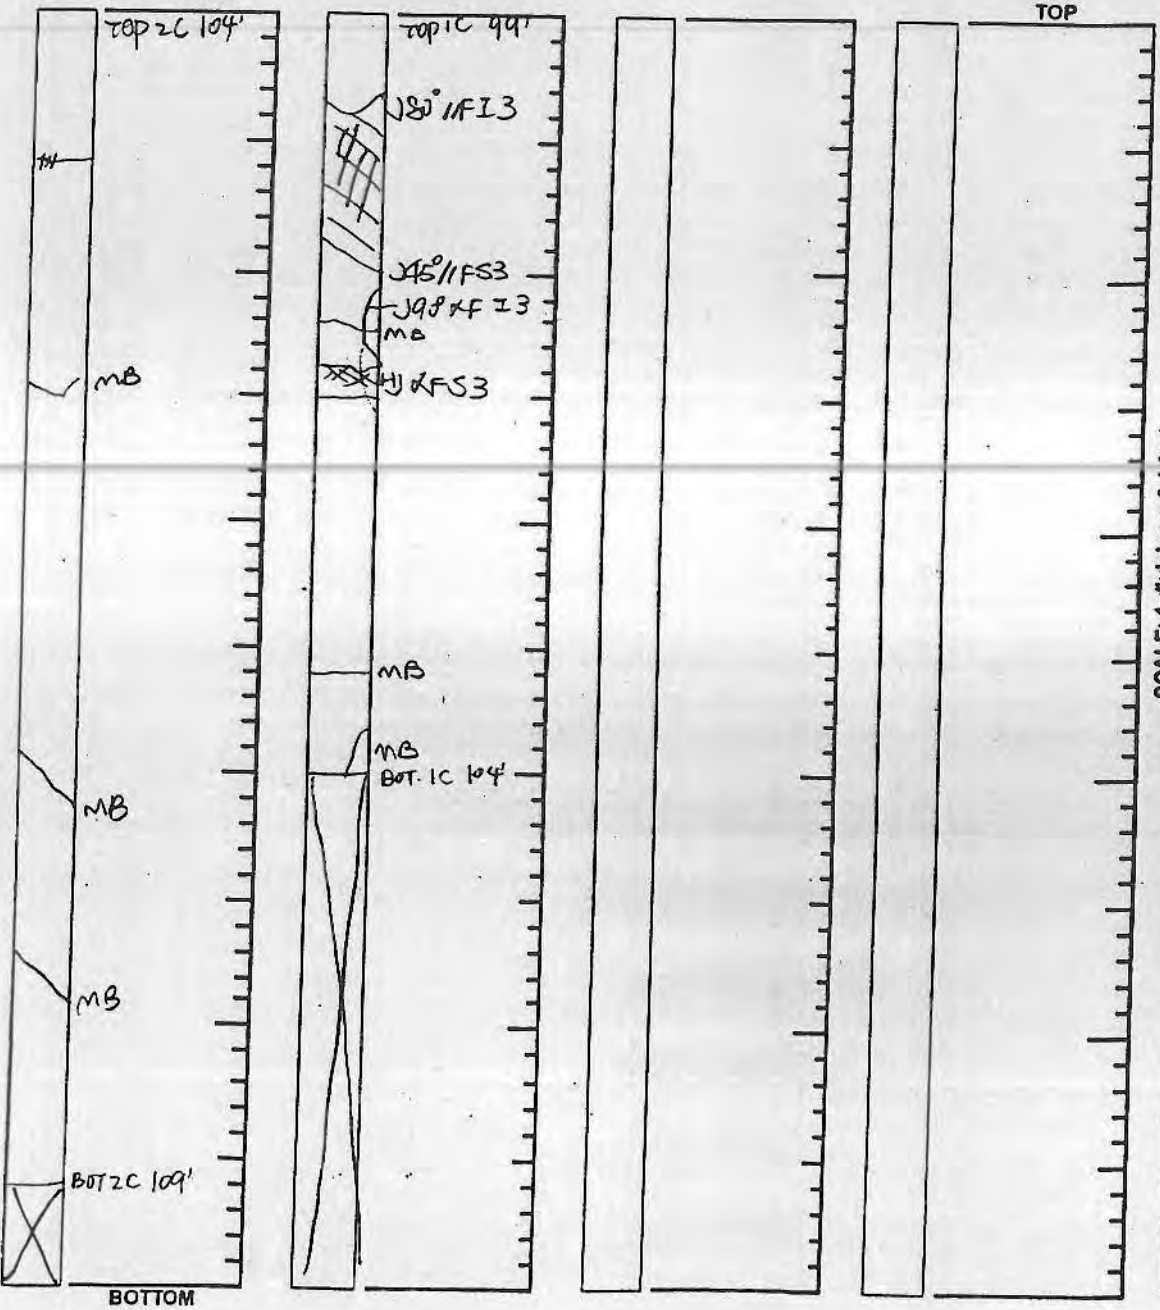 TOP
TOP 2C 104'
MB
MB
MB
BOT 2C 109'
BOTTOM
TOP 1C 99'
J80° //F I 3
J45° //FS3
MB
MB
MB
BOT. 1C 104'